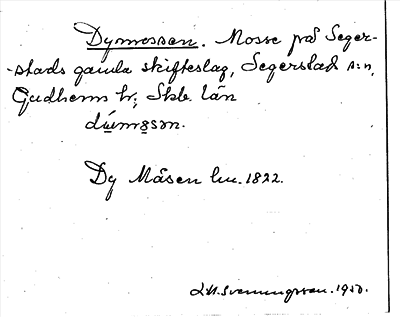 Dymossen. Mosse på Seger-
-stads gamla skifteslag, Segerstad s:n,
Gudhems hr; Skb. län
dúmɔsən.
Dy Måsen lm. 1822.
L.M. Svenungsson. 1950.